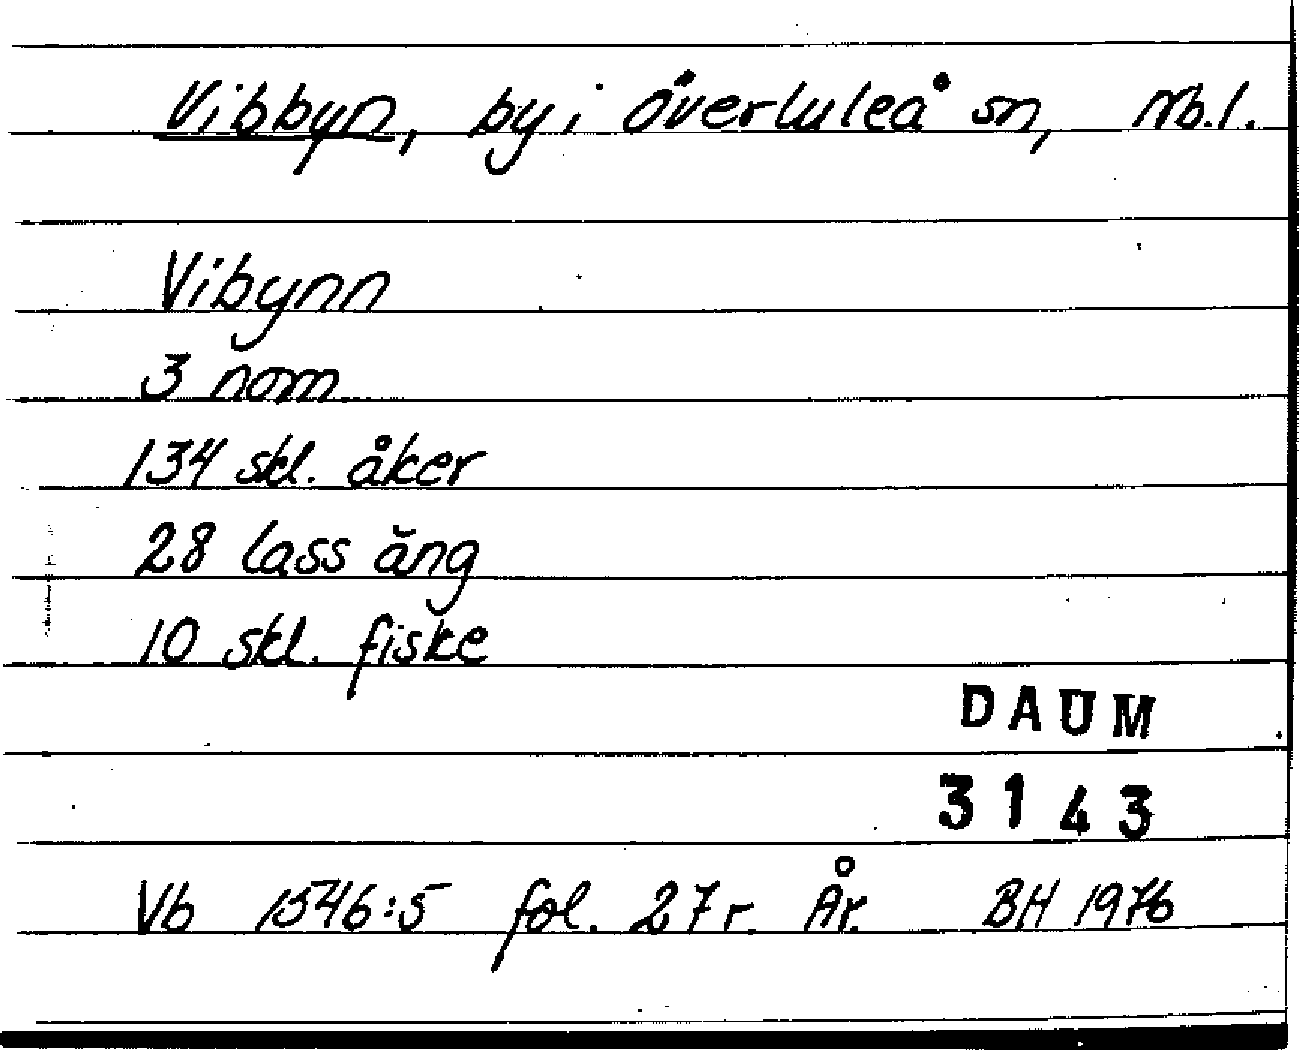 Vibbyn, by i överluleå sn, Nb.l.
Vibynn
3 nom
134 skl. åker
28 lass äng
10 skl. fiske
DAUM
3143
Vb 1546:5 fol. 27r. År. BH 1976